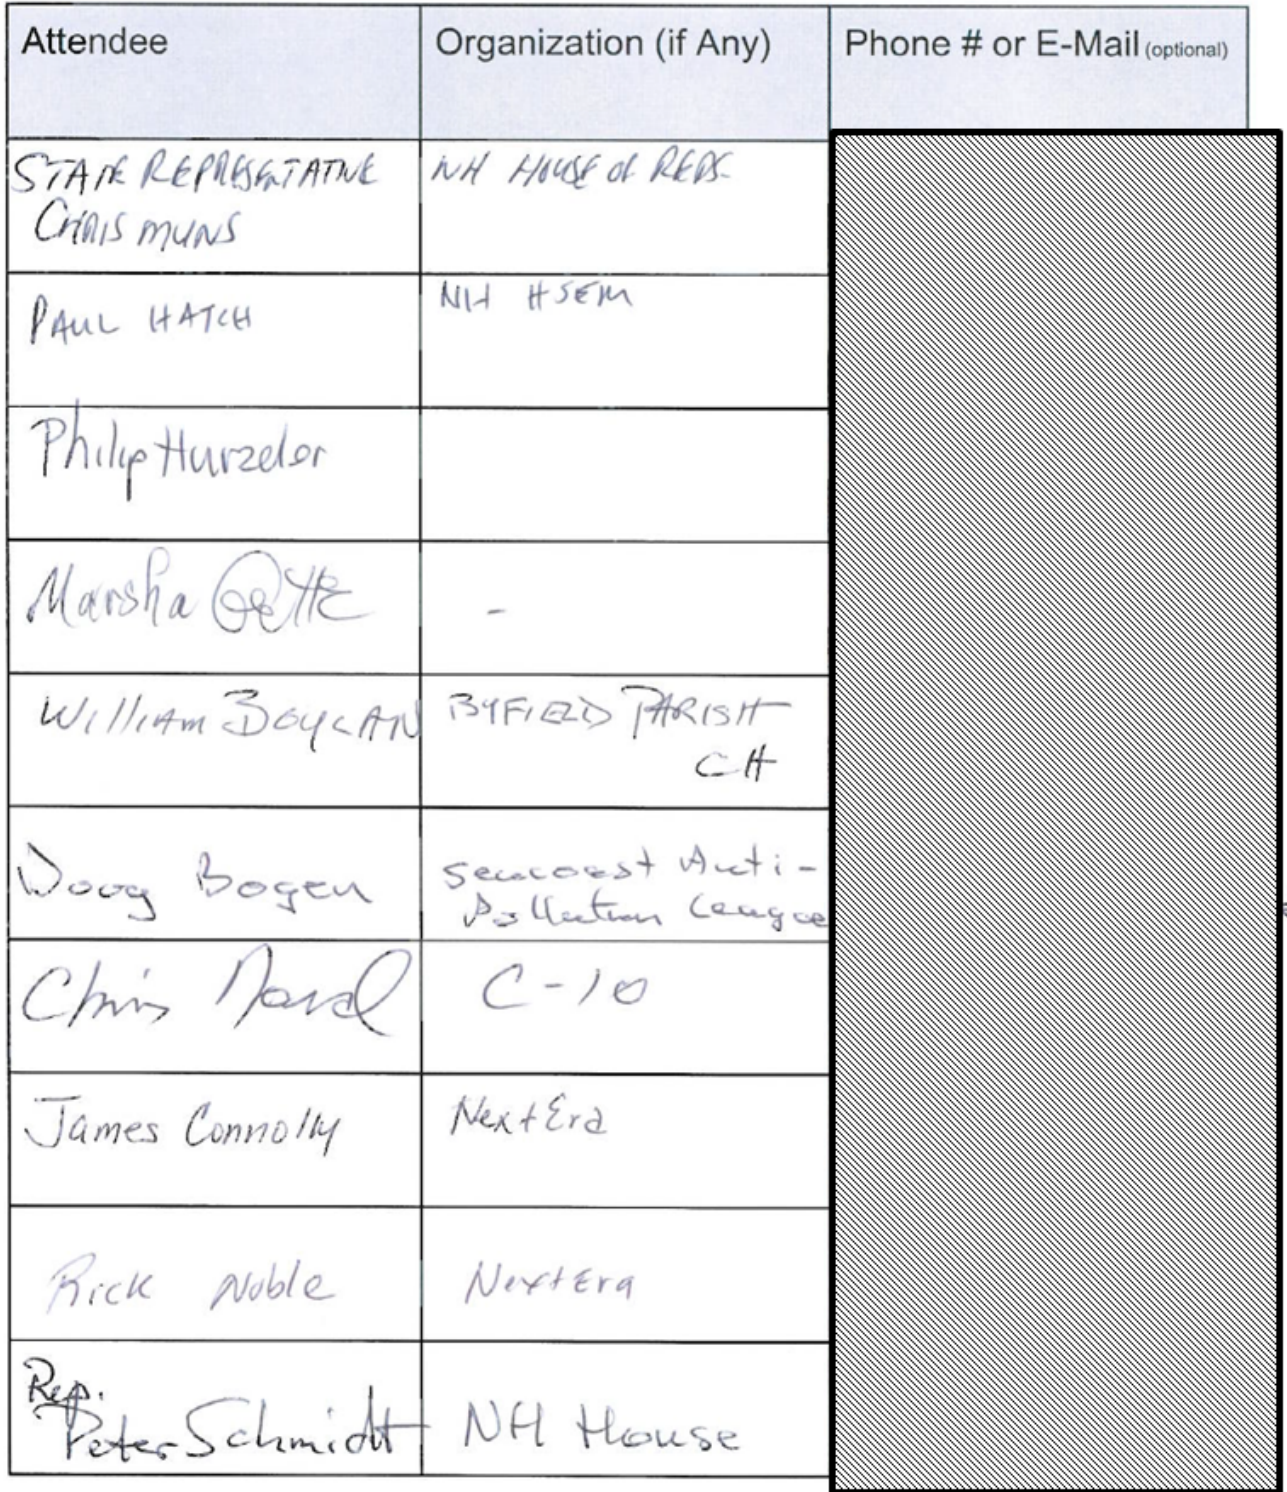 Attendee Organization (if Any) Phone # or E-Mail (optional)
STATE REPRESENTATIVE NH HOUSE of REPS.
CHRIS MUNS
PAUL HATCH NH HSEM
Philip Hurzeler
Marsha -
William BOYLAN BYFIELD PARISH
CH
Doug Bogen Seacoast Anti-
Pollution League
Chris C-10
James Connolly NextEra
Rick Noble NextEra
Rep.
Peter Schmidt NH House